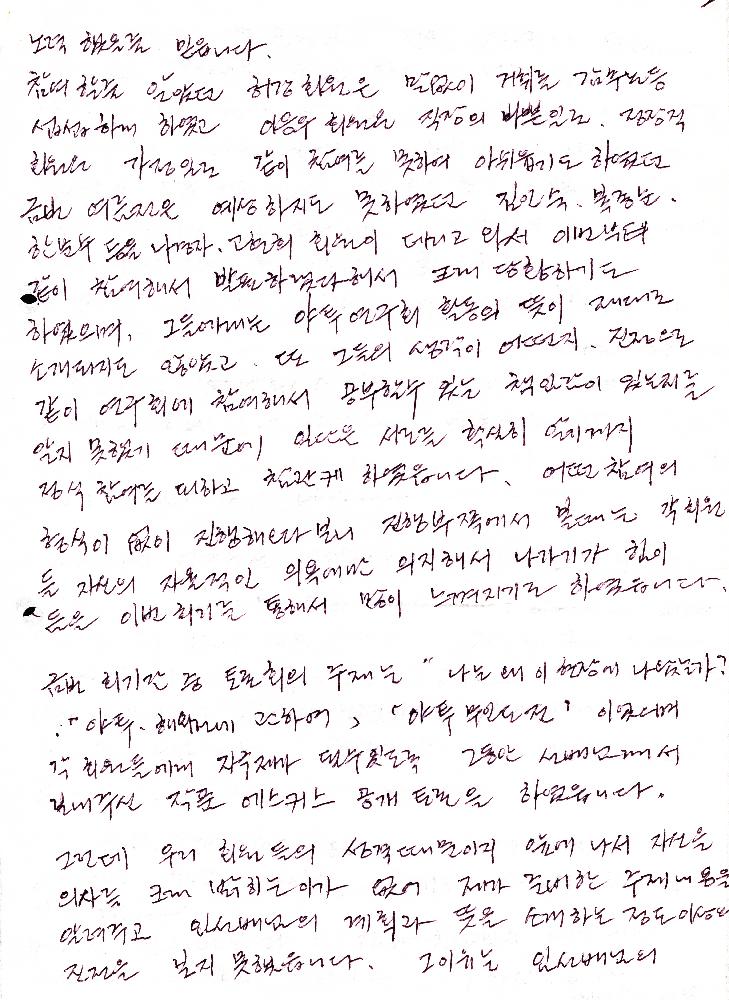 노력 했음을 믿습니다.
참여 할줄 알았던 허강 회원은 말없이 거취를 감추는등
섭섭하게 하였고 이응우 회원은 직장의 바쁜일로, 정장직
회원은 가정일로 같이 참여를 못하여 아쉬웁기도 하였던
금번 여름전은 예상하지도 못하였던
한분수 등을 나경자, 고현희 회원이 데리고 와서 이번부터
같이 참여해서 발표하겠다해서 크게 당황하기도
하였으며, 그들에게는 야투연구회 활동의 뜻이 제대로
소개되지도 않았고, 또 그들의 생각이 어떤지, 진정으로
같이 연구회에 참여해서 공부할수 있는 책임감이 있는지를
알지 못했기 때문에 일단은 서로를 확실히 알기까지
정식 참여는 피하고 참관케 하였습니다. 어떤 참여의
형식이 없이 진행해오다 보니 진행부쪽에서 볼때는 각회원
들 자신의 자율적인 의욕에만 의지해서 나가기가 힘이
듬을 이번 회기를 통해서 많이 느껴지기도 하였습니다.
금번 회기간 중 토론회의 주제는 "나는 왜 이 현장에 나왔는가?
"야투·해외전에 관하여, 「야투 무인도전」 이였으며
각 회원들에게 자극제가 될수있도록 그동안 선배님께서
보내주신 작품 에스키스 공개 토론을 하였습니다.
그런데 우리 회원들의 성격때문인지 앞에 나서 자신을
의사를 크게 밝히는이가 없어 제가 준비한 주제내용을
알려주고 임선배님의 계획과 뜻을 소개하는 정도이상의
진전을 보지 못했습니다. 그이유는 임선배님의